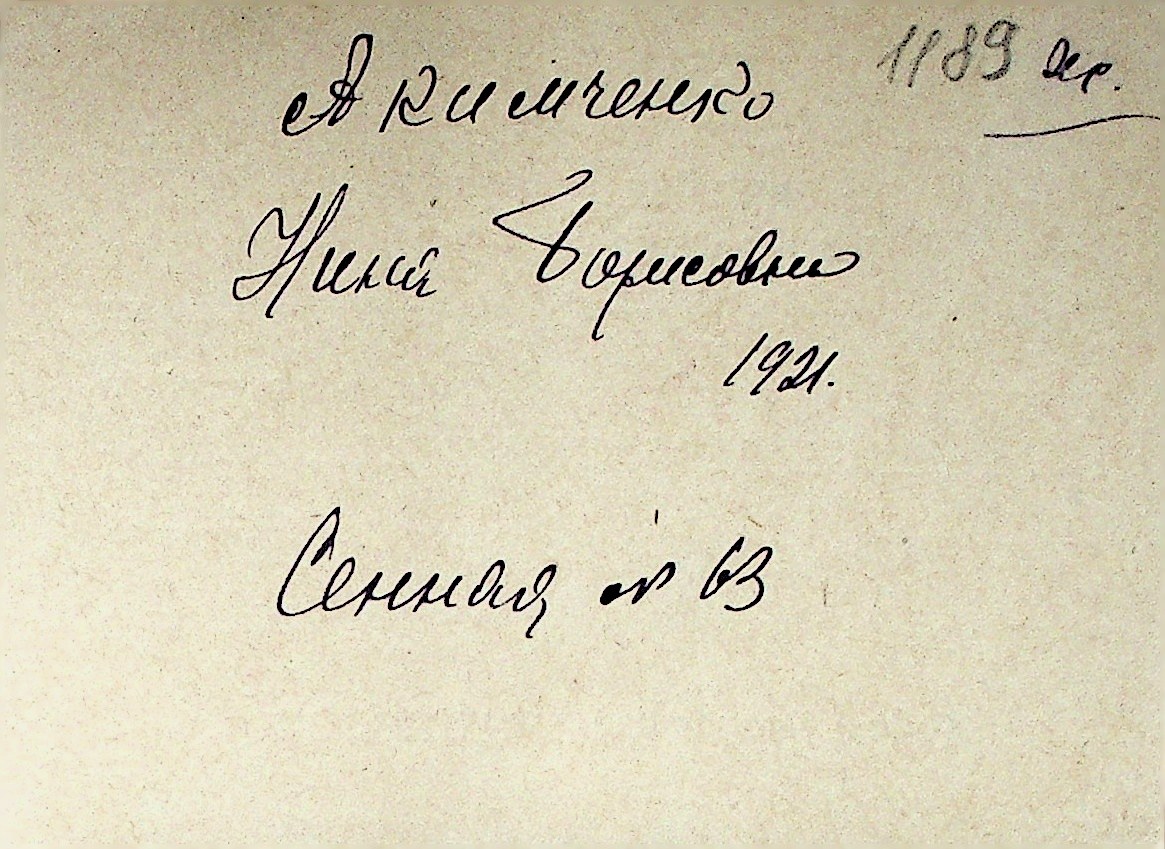 1189
Акимченко
Нина Борисовна
1921.
Сенная № 63